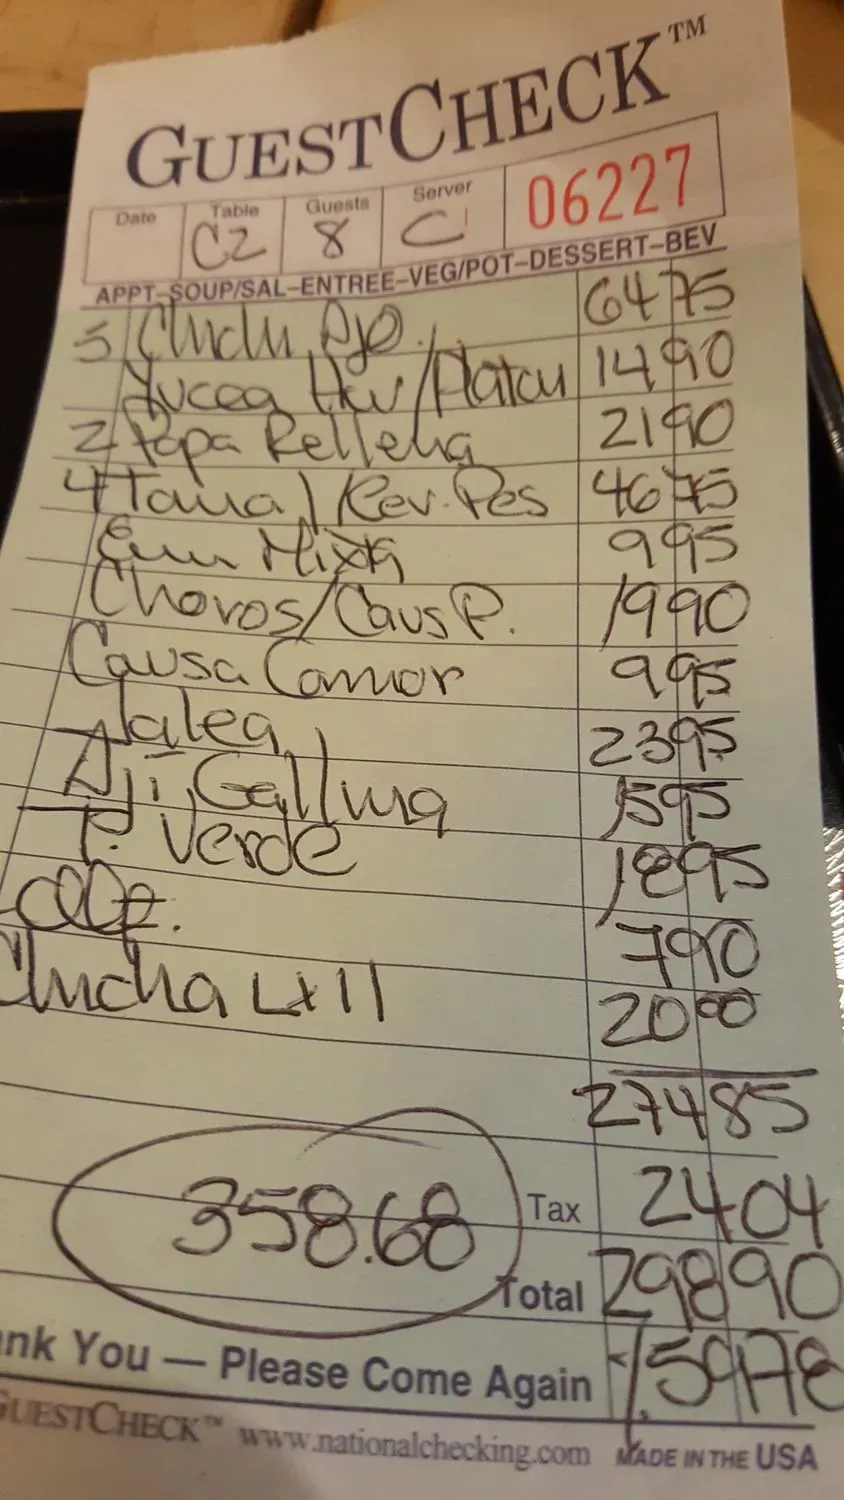 GUESTCHECK™
Date Table Guests Server 06227
C2 8 C
APPT–SOUP/SAL–ENTREE–VEG/POT–DESSERT–BEV
5 6475
Yucea / 1490
2 Papa Rellena 2190
4 / Rev. Pes 4675
Mixta 995
Choros/Caus P. 1990
Causa Camor 995
Jalea 2395
Aji Gallina 1595
T. Verde 1895
790
Chicha Lx11 2000
27485
358.68 Tax 2404
Total 29890
5978
nk You — Please Come Again
GUESTCHECK™ www.nationalchecking.com MADE IN THE USA